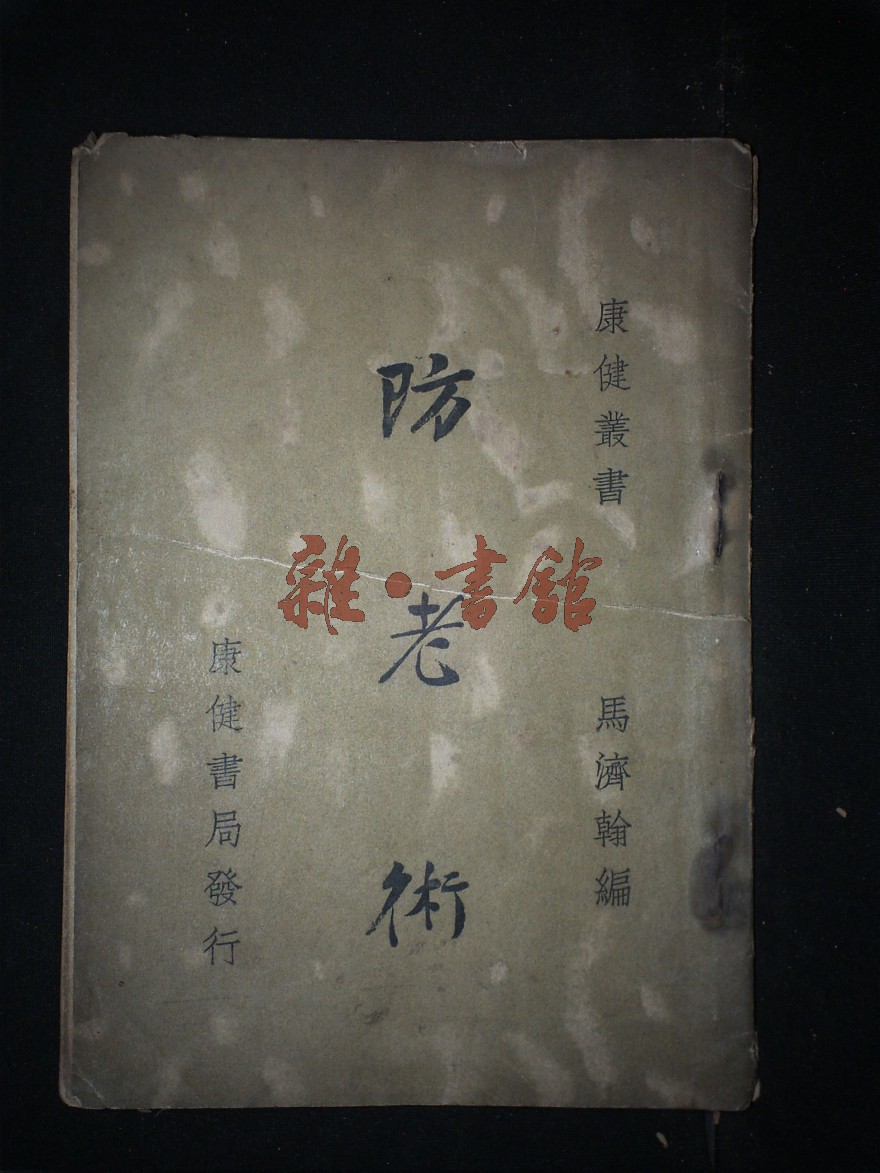 康健叢書
馬濟翰編
防老術
康健書局發行
雜·書館